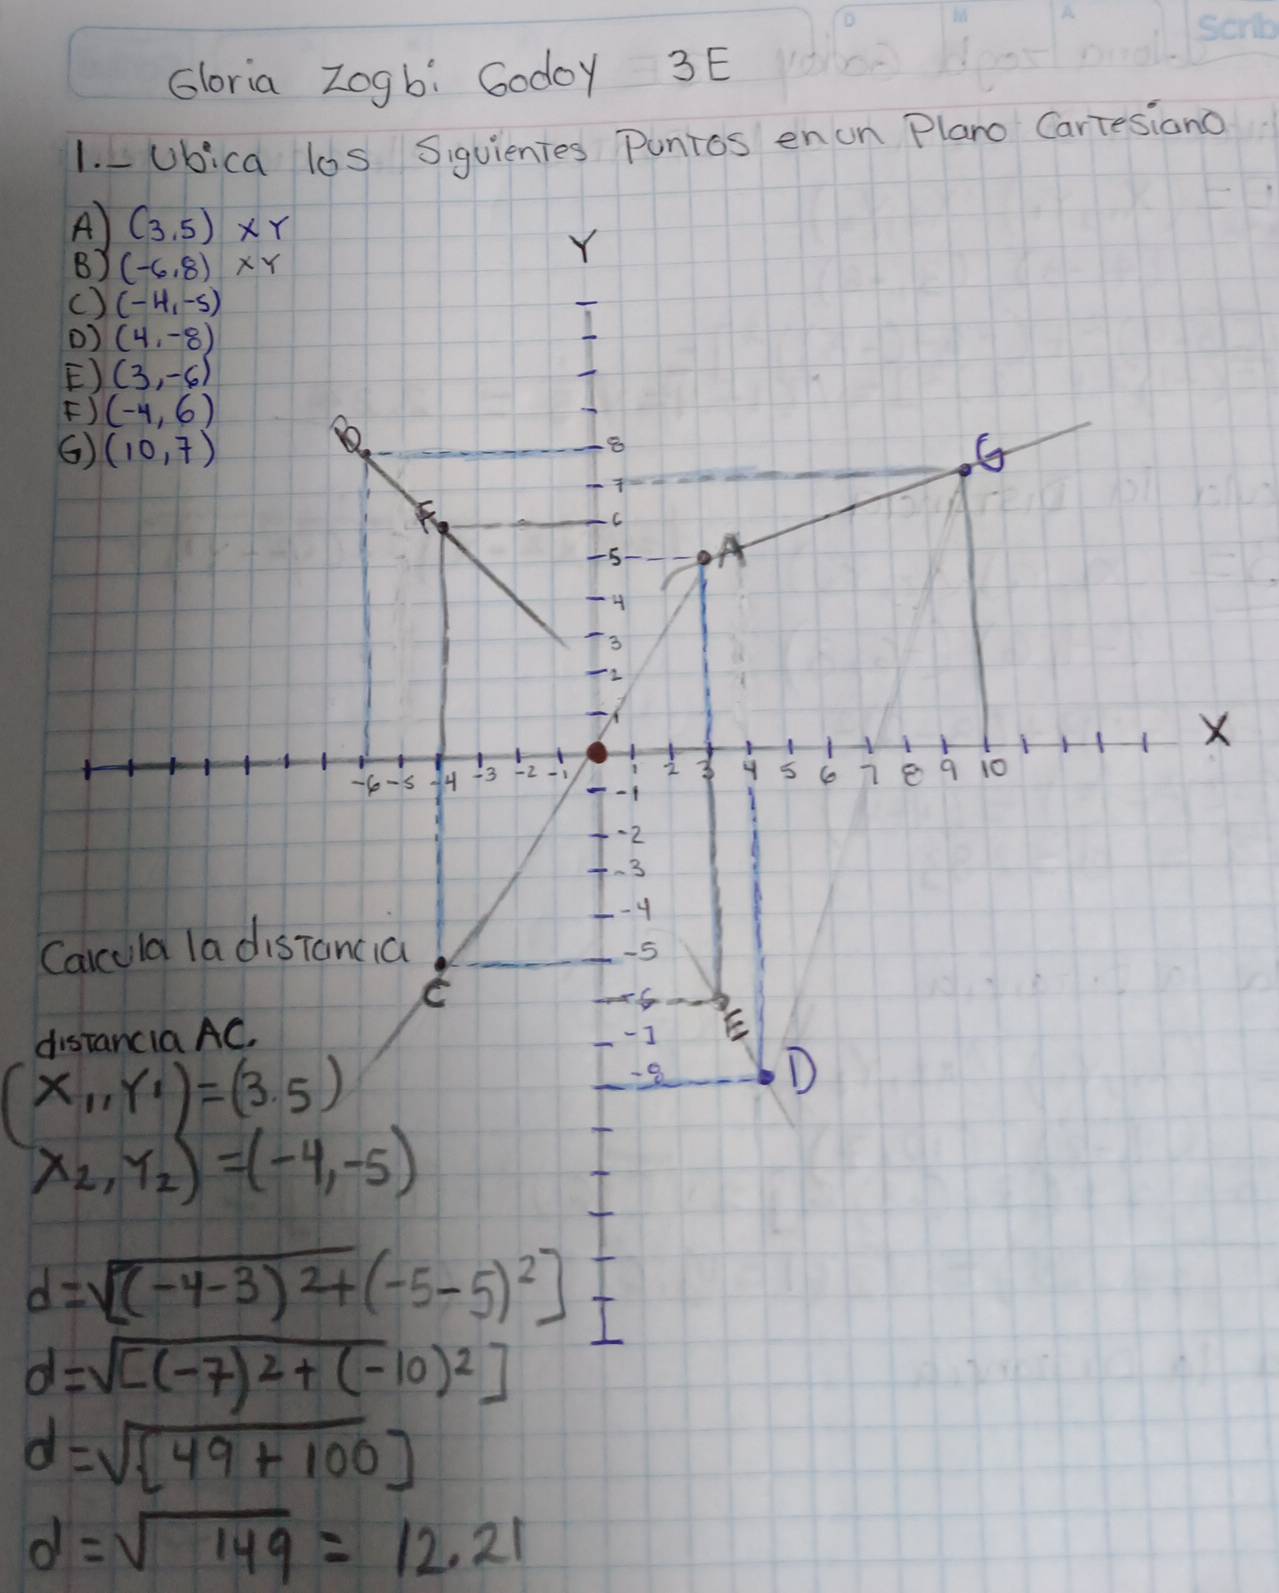 D M A Scrib
Gloria Zogbi Godoy 3E
1.- Ubica los Siguientes Puntos en un Plano Cartesiano
A) (3,5) X Y
B) (-6,8) X Y
C) (-4,-5)
D) (4,-8)
E) (3,-6)
F) (-4,6)
G) (10,7)
Y
B
8
G
7
F
6
5
A
4
3
2
1
X
-6 -5 -4 -3 -2 -1 1 2 3 4 5 6 7 8 9 10
-1
-2
-3
-4
Calcula la distancia
-5
C
-6
E
distancia AC.
-7
-8
D
(X1,,Y1)=(3.5)
X2,Y2)=(-4,-5)
d=√[(-4-3)2+(-5-5)²]
d=√[(-7)2+(-10)²]
d=√[49+100]
d=√149 = 12.21